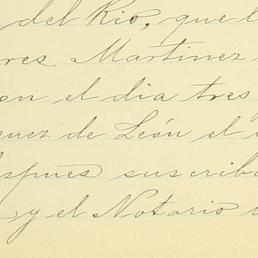 del Rio, que l
res Martinez
on el dia tres
uez de León el
spues suscribo
y el Notario